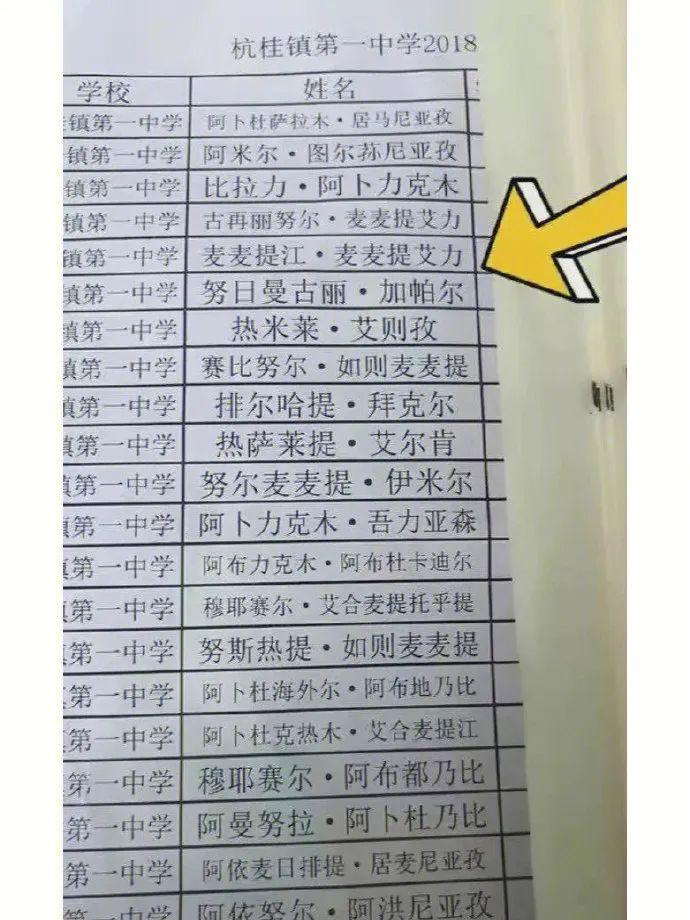 杭桂镇第一中学2018
学校 姓名
镇第一中学 阿卜杜萨拉木·居马尼亚孜
镇第一中学 阿米尔·图尔荪尼亚孜
镇第一中学 比拉力·阿卜力克木
镇第一中学 古再丽努尔·麦麦提艾力
镇第一中学 麦麦提江·麦麦提艾力
镇第一中学 努日曼古丽·加帕尔
镇第一中学 热米莱·艾则孜
镇第一中学 赛比努尔·如则麦麦提
镇第一中学 排尔哈提·拜克尔
镇第一中学 热萨莱提·艾尔肯
镇第一中学 努尔麦麦提·伊米尔
镇第一中学 阿卜力克木·吾力亚森
镇第一中学 阿布力克木·阿布杜卡迪尔
镇第一中学 穆耶赛尔·艾合麦提托乎提
第一中学 努斯热提·如则麦麦提
第一中学 阿卜杜海外尔·阿布地乃比
第一中学 阿卜杜克热木·艾合麦提江
第一中学 穆耶赛尔·阿布都乃比
第一中学 阿曼努拉·阿卜杜乃比
第一中学 阿依麦日排提·居麦尼亚孜
第一中学 阿依努尔·阿洪尼亚孜